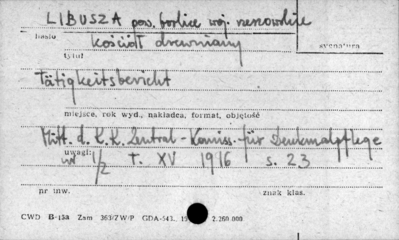 LIBUSZA pow. Gorlice woj. rzeszowskie
hasło
kościół drewniany
sygnatura
tytuł
Tätigkeitsbericht
miejsce, rok wyd., nakładca, format, objętość
Mitt. d. K.K. Zentral-Komiss. für Denkmalpflege
uwagi:
1/2 t. XV 1916 s. 23
nr inw.
znak klas.
CWD B-13a Zam 363/ZWP GDA-543. 2.260.000